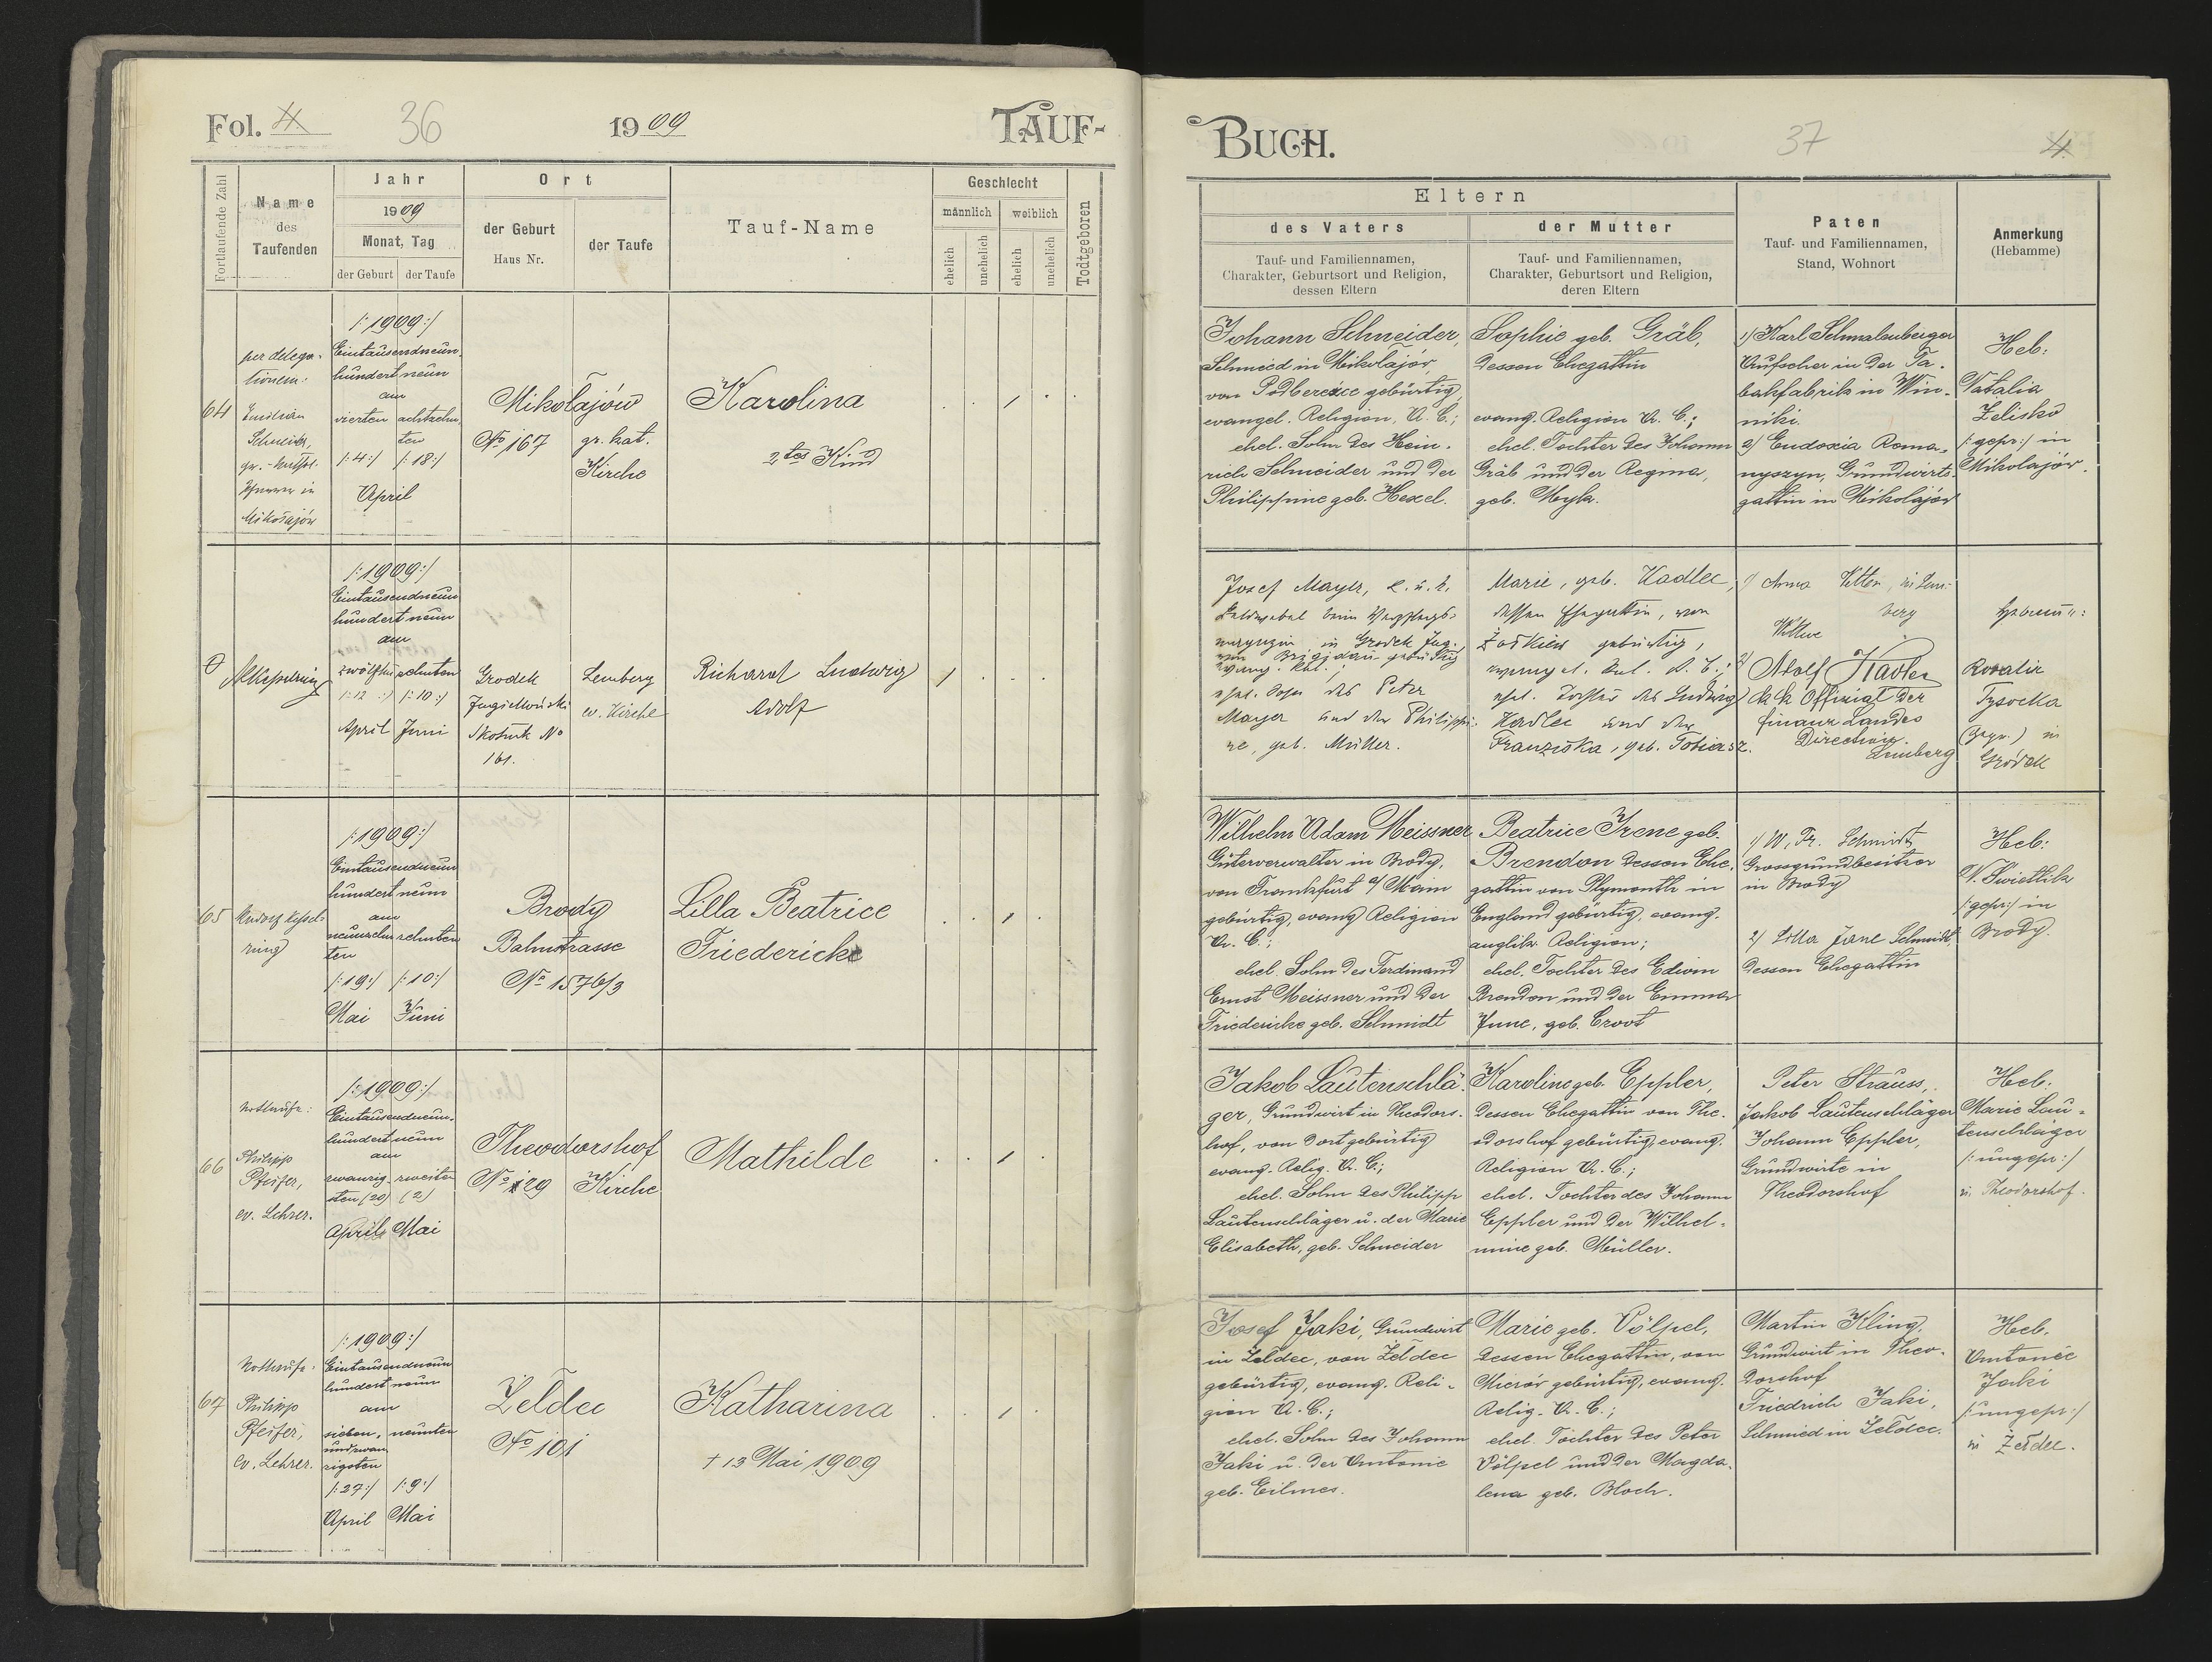 Fol. 4
36
1909
TAUF-
Fortlaufende Zahl
Name
des
Taufenden
Jahr
1909
Monat, Tag
der Geburt
der Taufe
Ort
der Geburt
Haus Nr.
der Taufe
Tauf-Name
Geschlecht
männlich
weiblich
ehelich
unehelich
ehelich
unehelich
Todtgeboren
64
per delega-
tionem:
Schneider,
Mikołajów
/:1909:/
Eintausendneun-
hundert neun
am
vierten
/:4:/
achtzehn
ten
/:18:/
April
Mikołajów
No 167
gr. kat.
Kirche
Karolina
2tes Kind
/:1909:/
Eintausendneun
hundert neun
am
zwölften
/:12:/
April
zehnten
/:10:/
Juni
Grodek
Jagielloński
No
161.
Lemberg
ev. Kirche
Richard Ludwig
Adolf
65
Rudolf Kessel-
ring
/:1909:/
Eintausendneun
hundert neun
am
neunzehn
ten
/:19:/
Mai
zehnten
/:10:/
Juni
Brody
Bahnstrasse
No 1576/3
Lilla Beatrice
Friedericke
66
Nottaufe:
Philipp
Pfeifer,
ev. Lehrer.
/:1909:/
Eintausendneun-
hundert neun
am
zwanzig-
sten (20)
April
zweiten
(2)
Mai
Theodorshof
No 129
Kirche
Mathilde
67
Nottaufe:
Philipp
Pfeifer,
ev. Lehrer.
/:1909:/
Eintausendneun
hundert neun
am
sieben-
undzwan
zigsten
/:27:/
April
neunten
/:9:/
Mai
Żełdec
No 101
Katharina
† 13 Mai 1909
BUCH.
37
4.
Eltern
des Vaters
Tauf- und Familiennamen,
Charakter, Geburtsort und Religion,
dessen Eltern
der Mutter
Tauf- und Familiennamen,
Charakter, Geburtsort und Religion,
deren Eltern
Paten
Tauf- und Familiennamen,
Stand, Wohnort
Anmerkung
(Hebamme)
Johann Schneider,
Schmied in Mikołajów,
von gebürtig,
evangel. Religion, A. C.;
ehel. Sohn des Hein-
rich Schneider und der
Philippine geb. Hexel.
Sophie geb. Gräb,
dessen Ehegattin
evang. Religion A. C.;
ehel. Tochter des Johann
Gräb und der Regina,
geb. Myk.
1) Karl Schmalenberger
Aufseher in der Ta-
bakfabrik in Win-
niki.
2) Eudoxia Roma-
nyszyn, Grundwirts-
gattin in Mikołajów
Heb:
Natalia
Zelisko
/:gepr:/ in
Mikołajów.
Josef Mayer, k. u. k.
Feldwebel beim Verpflegs-
magazin in Grodek Jag.
von Brigidau gebürtig
evang. Rel.,
ehel. Sohn des Peter
Mayer und der Philippi-
ne, geb. Müller.
Marie, geb. Kadlec,
dessen Ehegattin, von
Żółkiew gebürtig,
evangel. Rel. A. C.;
ehel. Tochter des Ludwig
Kadlec und der
Franziska, geb. Tobiasz.
1) Anna in Lem-
berg
Witwe
2) Adolf Kadlec
k.k. Offizial der
Finanz Landes
Direction
Lemberg
Rosalia
Tysocka
(gepr.) in
Gródek
Wilhelm Adam Meissner
Güterverwalter in Brody,
von Frankfurt a/ Main
gebürtig, evang Religion
A. C.;
ehel. Sohn des Ferdinand
Ernst Meissner und der
Friedericke geb. Schmidt
Beatrice Irene geb.
Brendon dessen Ehe-
gattin von Plymouth in
England gebürtig, evang.
anglik. Religion;
ehel. Tochter des Edwin
Brendon und der Emma
June, geb. Croot
1) W. Fr. Schmidt
Grossgrundbesitzer
in Brody
2) Lilla Jane Schmidt,
dessen Ehegattin
Heb:
N. Swietlik
/:gepr:/ in
Brody.
Jakob Lautenschlä-
ger, Grundwirt in Theodors-
hof, von dort gebürtig
evang. Relig. A. C.;
ehel. Sohn des Philipp
Lautenschläger u. der Marie
Elisabeth, geb. Schneider
Karoline geb. Eppler,
dessen Ehegattin von The-
odorshof gebürtig, evang.
Religion A. C.;
ehel. Tochter des Johann
Eppler und der Wilhel-
mine geb. Müller.
Peter Strauss,
Jakob Lautenschläger
Johann Eppler,
Grundwirte in
Theodorshof
Heb:
Marie Lau-
tenschläger
/:ungepr:/
in Theodorshof.
Josef Jaki, Grundwirt
in Żełdec, von Żełdec
gebürtig, evang. Reli-
gion A. C.;
ehel. Sohn des Johann
Jaki u. der Antonie
geb. Eilmes.
Marie geb. Völpel,
dessen Ehegattin, von
gebürtig, evang.
Relig. A. C.;
ehel. Tochter des Peter
Völpel und der Magda-
lena geb. Bloch.
Martin Kling,
Grundwirt in Theo-
dorshof
Friedrich Jaki,
Schmied in Żełdec.
Heb.
Antonie
Jaki
/:ungepr:/
in Żełdec.